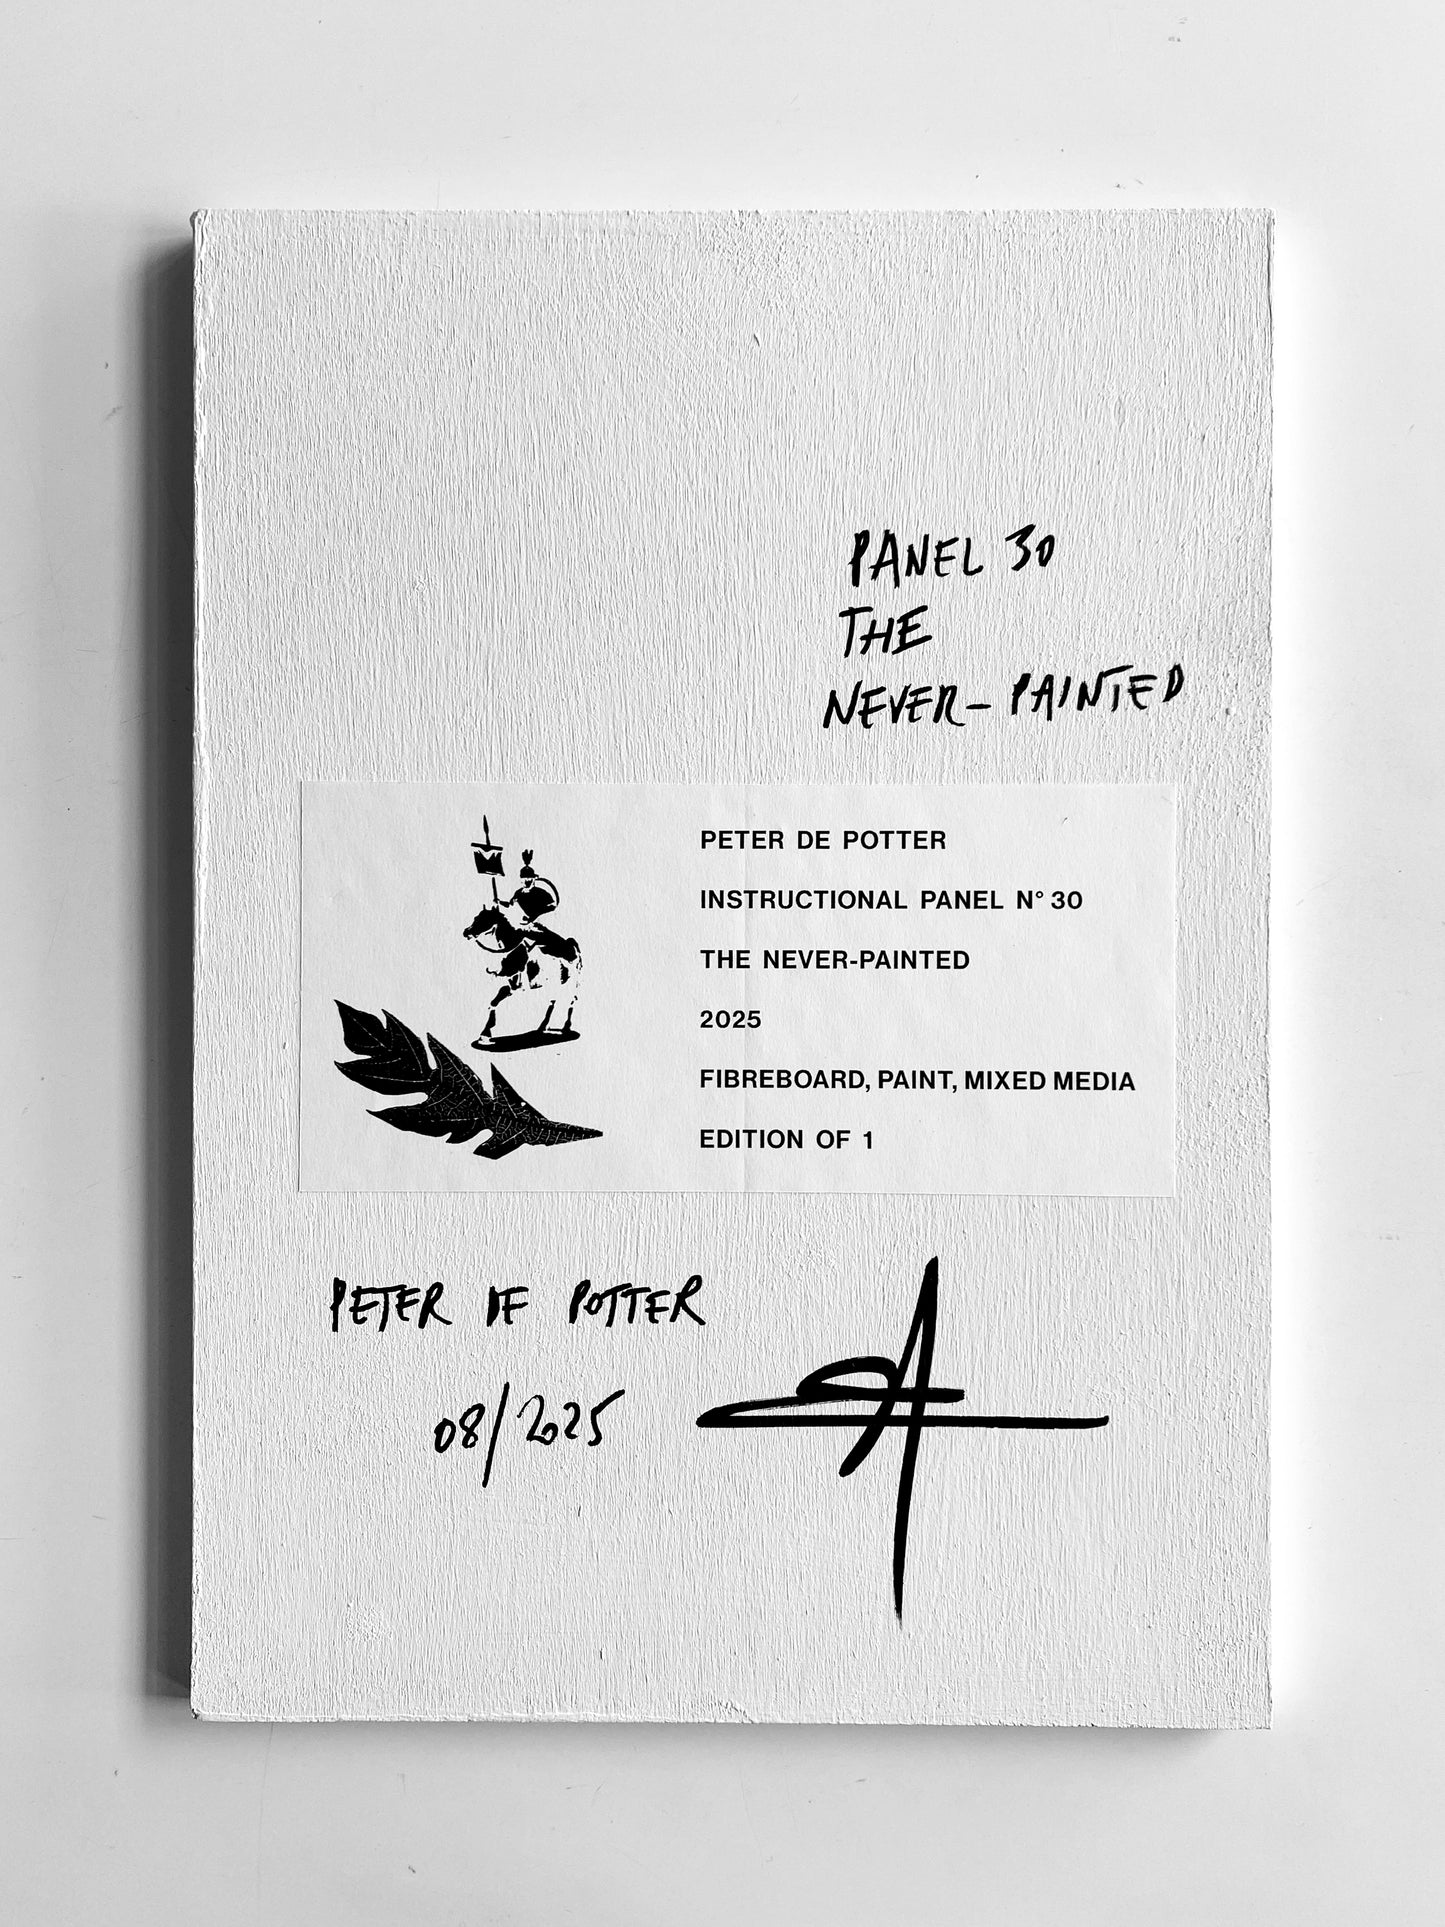 PANEL 30
THE
NEVER-PAINTED
PETER DE POTTER
INSTRUCTIONAL PANEL N° 30
THE NEVER-PAINTED
2025
FIBREBOARD, PAINT, MIXED MEDIA
EDITION OF 1
PETER DE POTTER
08/2025